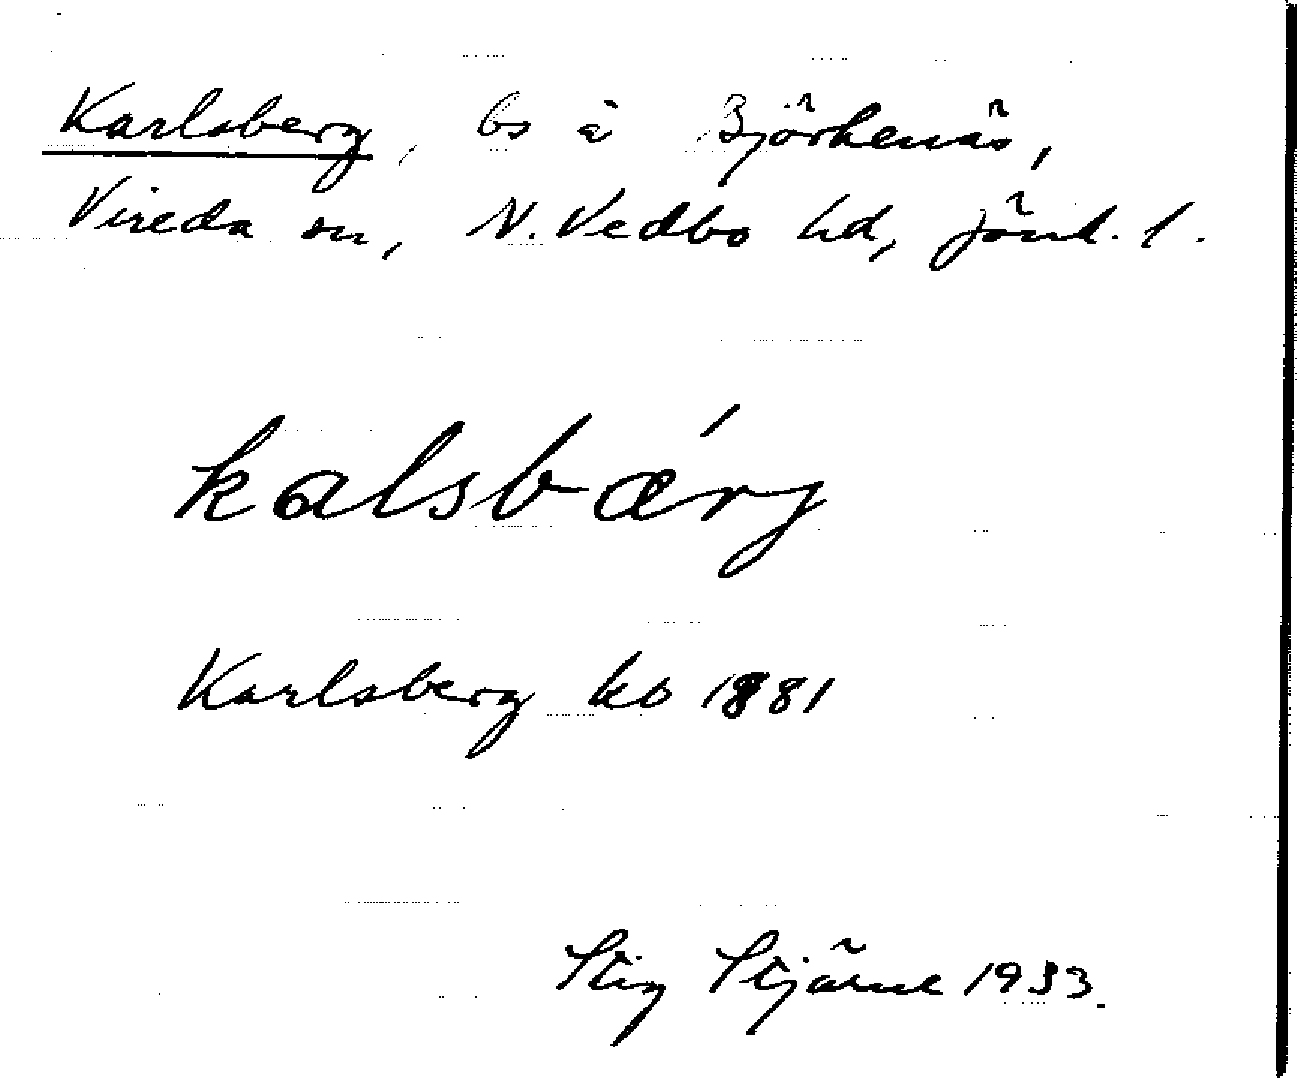 Karlsberg, bs å Björkenäs,
Vireda sn, N. Vedbo hd, Jönk. l.
kalsbárj
Karlsberg kb 1881
Stig Stjärne 1933.